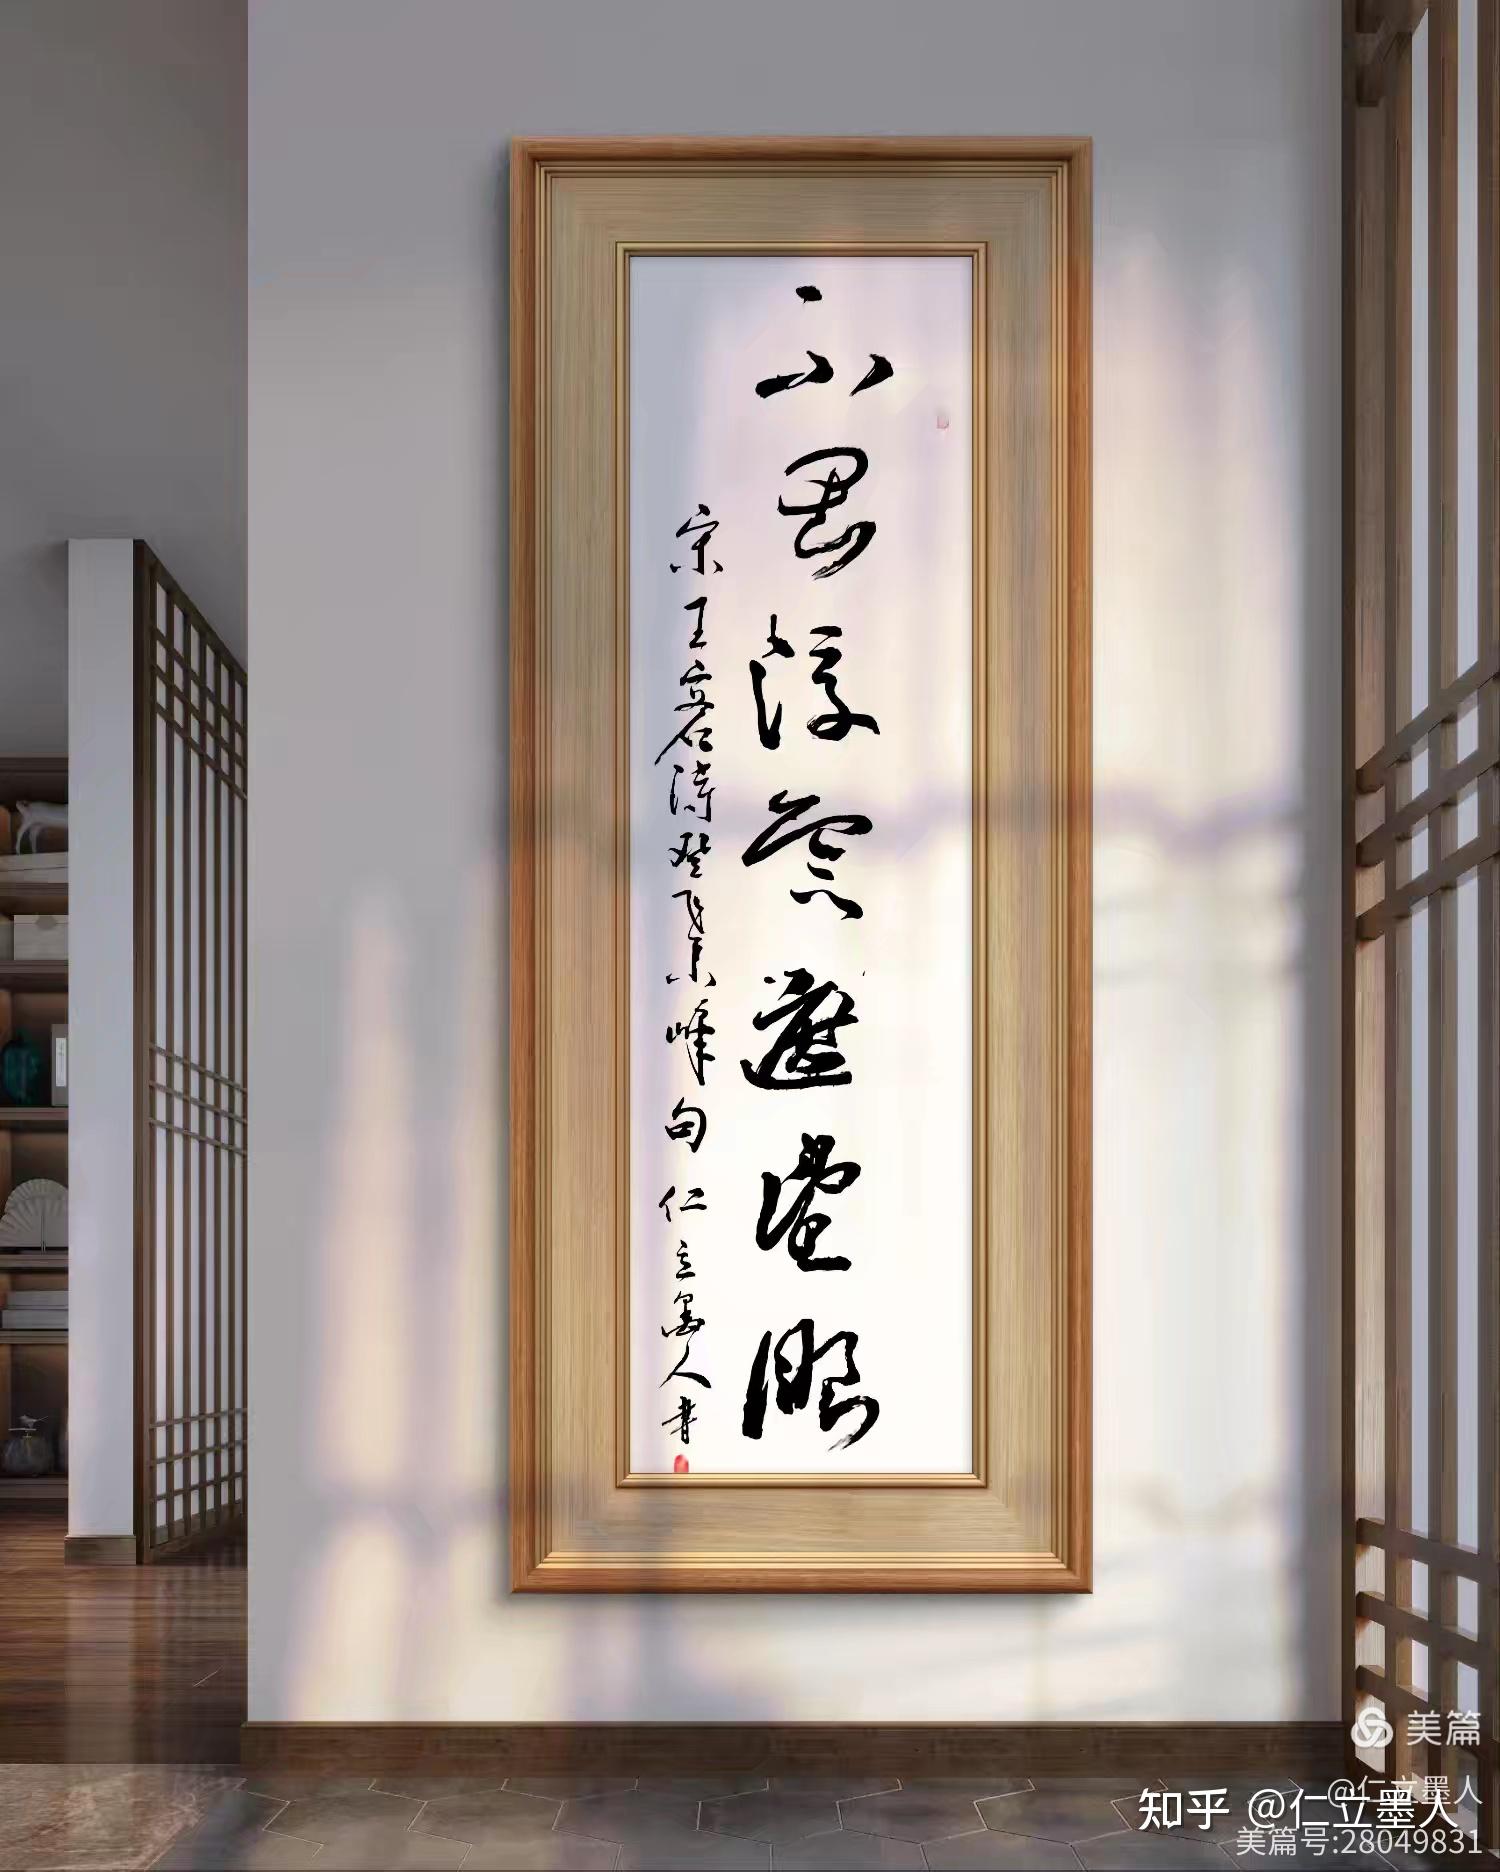 不畏浮云遮望眼
宋王安石诗登飞来峰句仁立墨人书
美篇
@仁立墨人
知乎 @仁立墨人
美篇号:28049831